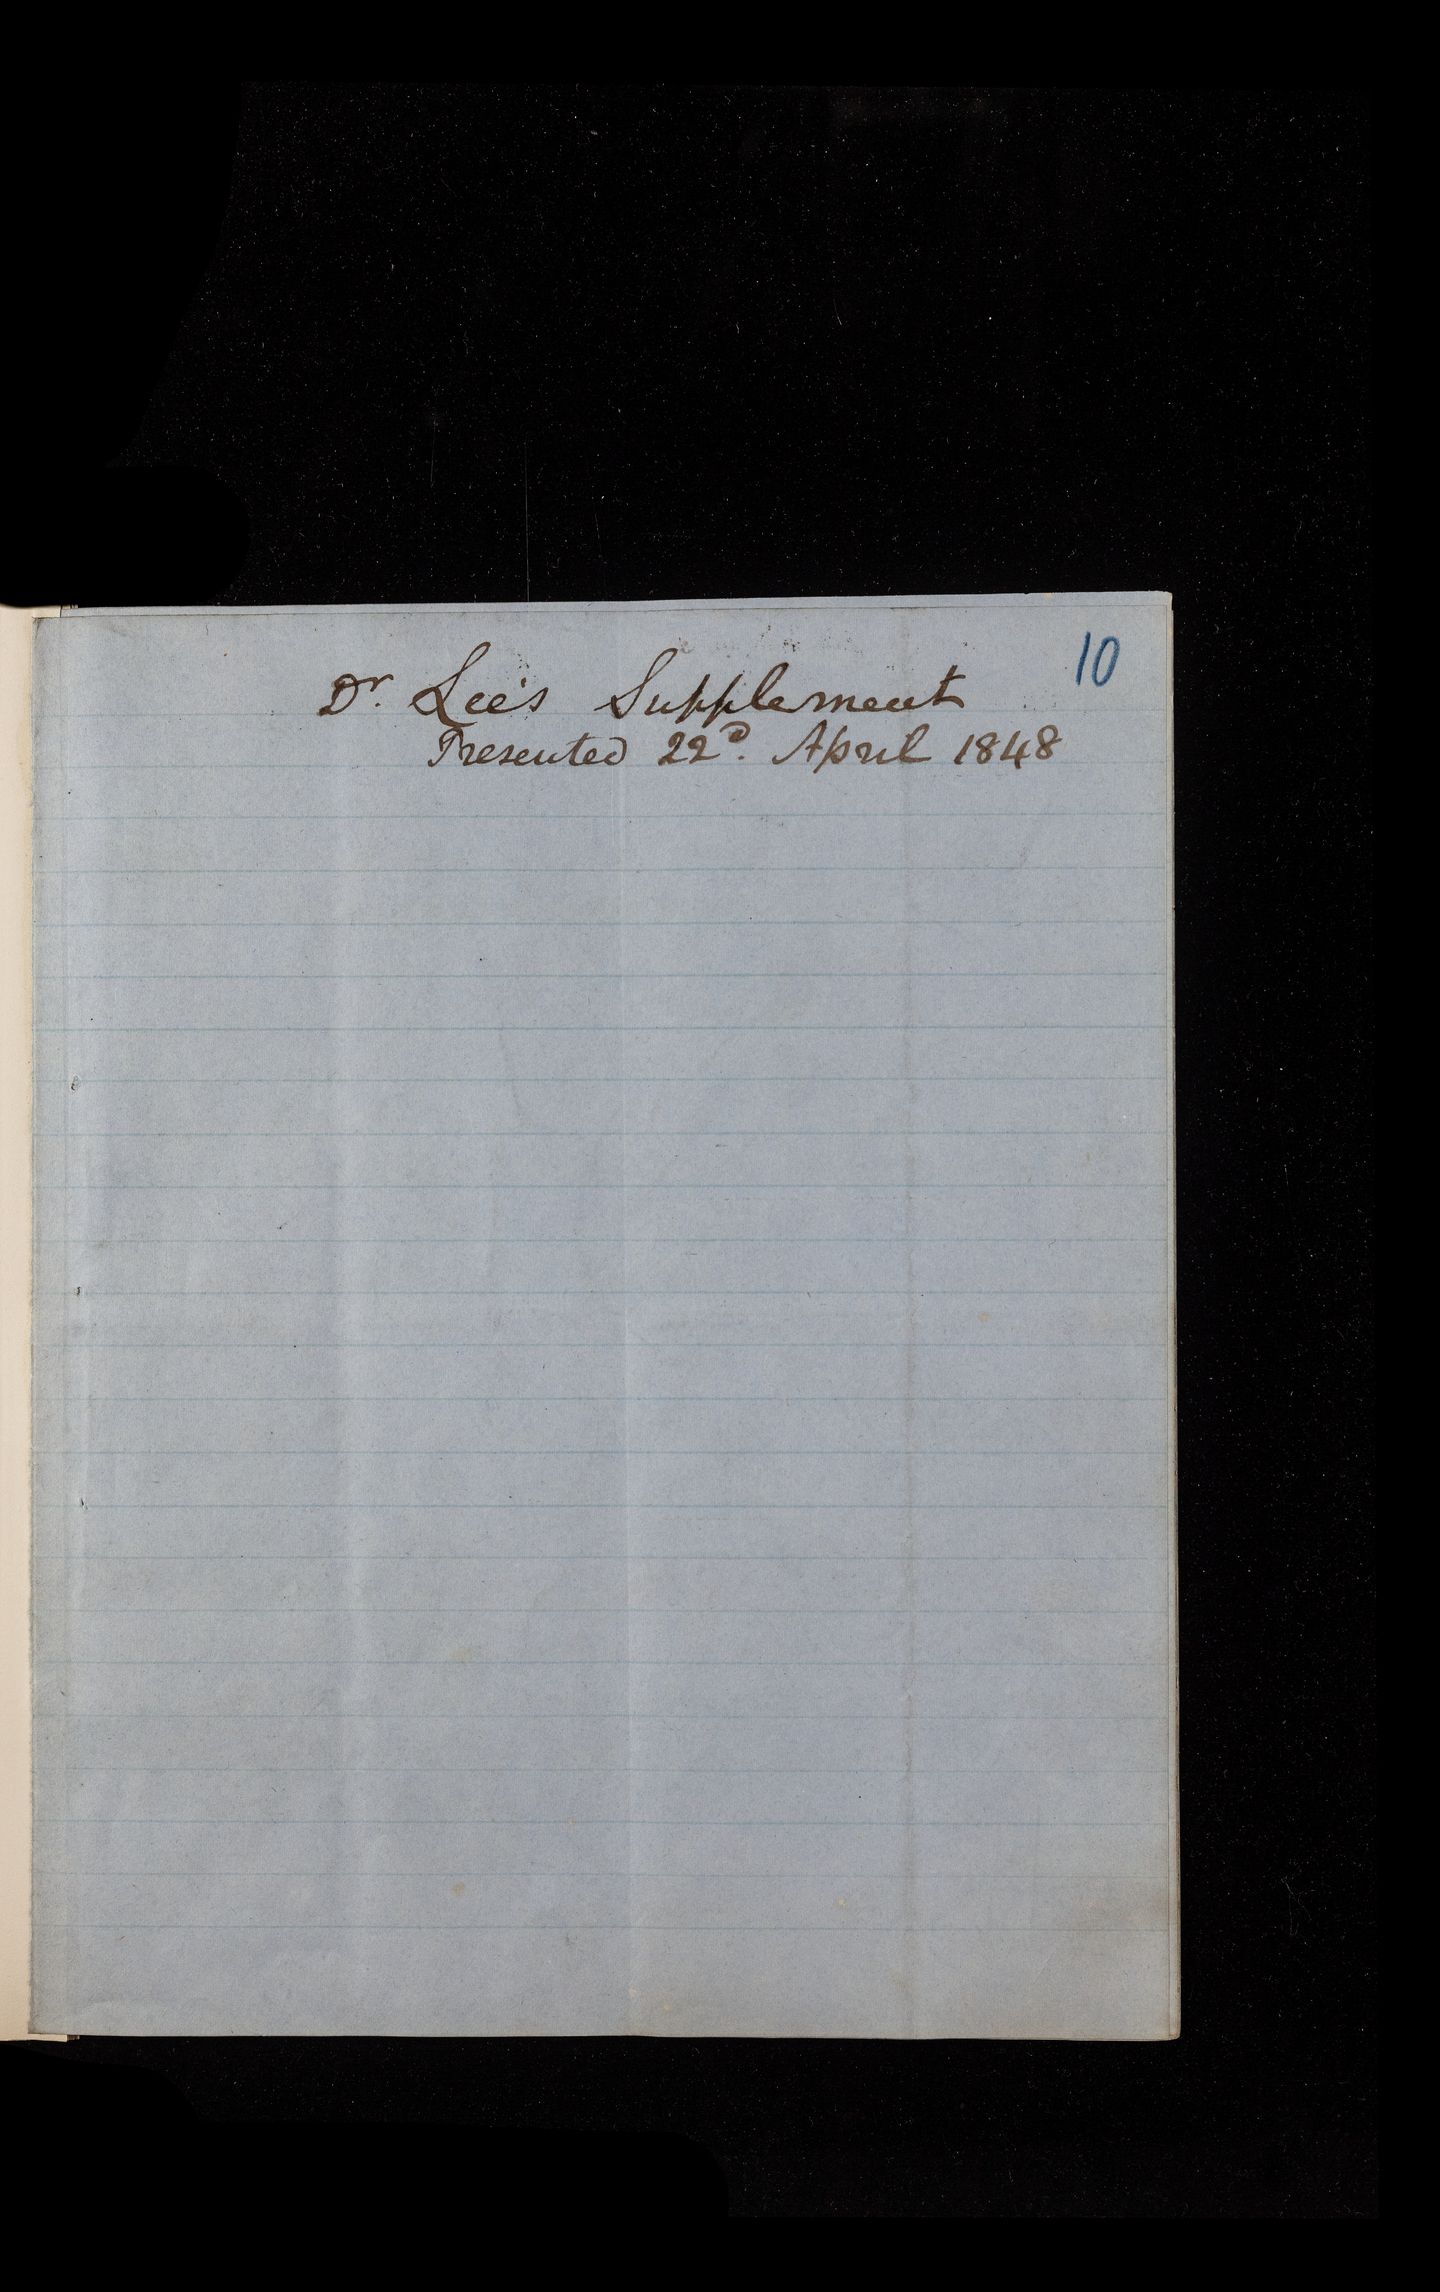 10
Dr. Lee's Supplement
Presented 22d. April 1848